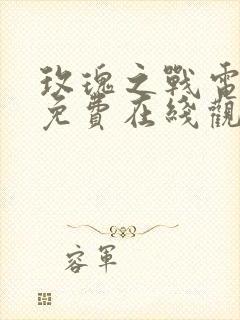 玫瑰之戰電
免費在綫觀
容軍